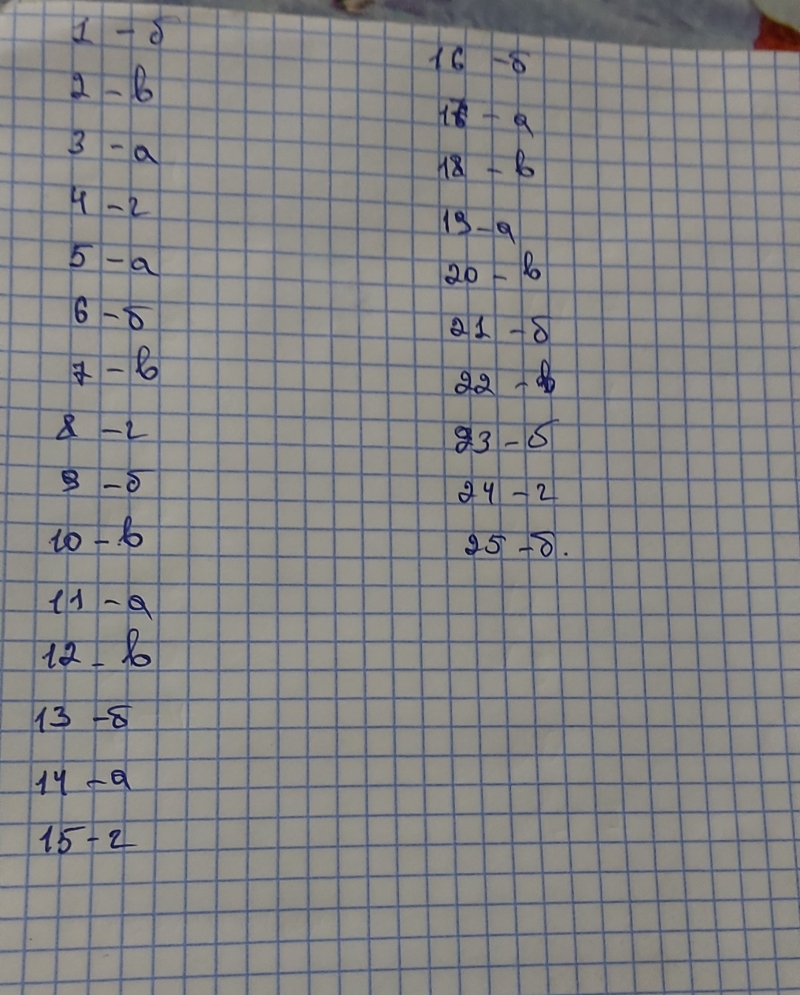 1 - б
2 - в
3 - а
4 - г
5 - а
6 - б
7 - в
8 - г
9 - б
10 - в
11 - а
12 - в
13 - б
14 - а
15 - г
16 - б
17 - а
18 - в
19 - а
20 - в
21 - б
22 - в
23 - б
24 - г
25 - б.